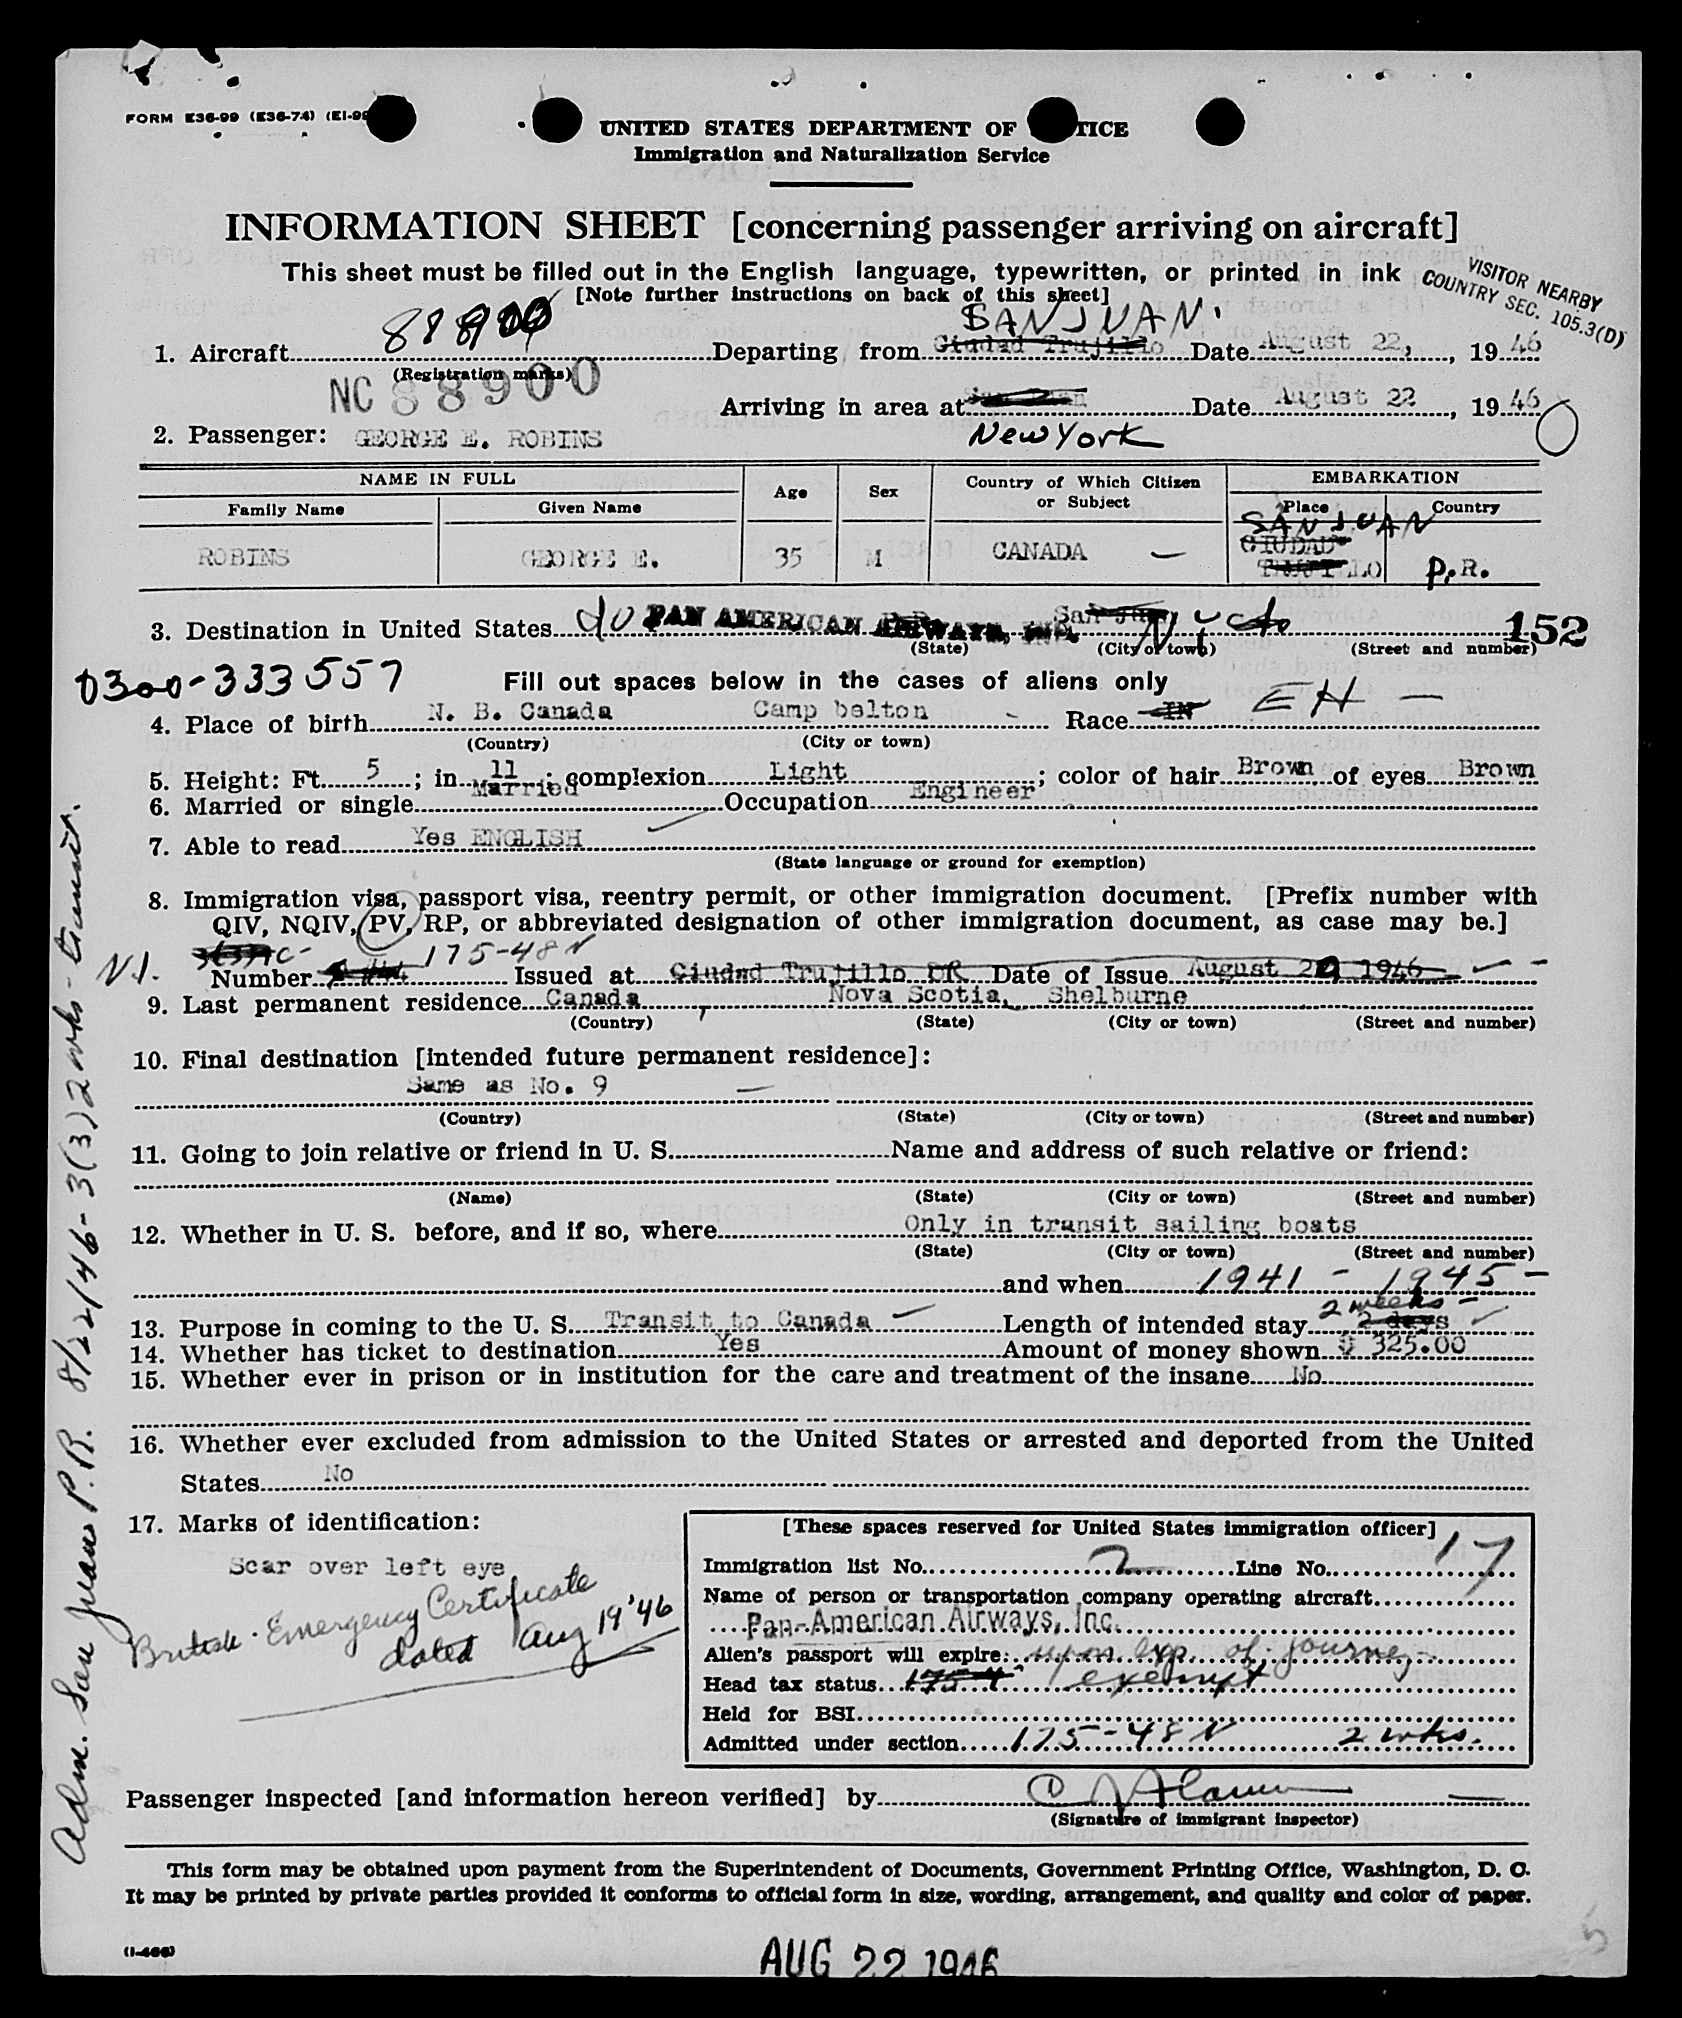 FORM E36-99 (E36-74) (EI-99
UNITED STATES DEPARTMENT OF TICE
Immigration and Naturalization Service
INFORMATION SHEET [concerning passenger arriving on aircraft]
This sheet must be filled out in the English language, typewritten, or printed in ink
[Note further instructions on back of this sheet]
VISITOR NEARBY
COUNTRY SEC. 105.3(D)
SAN JUAN.
1. Aircraft 88900 Departing from Ciudad Trujillo Date August 22, , 19 46
(Registration marks)
NC 88900
Arriving in area at San Juan Date August 22 , 19 46
2. Passenger: GEORGE E. ROBINS New York
NAME IN FULL Age Sex Country of Which Citizen or Subject EMBARKATION
Family Name Given Name Place Country
SAN JUAN
ROBINS GEORGE E. 35 M CANADA — CIUDAD TRUJILLO P.R.
3. Destination in United States PAN AMERICAN AIRWAYS, INC. San Juan N Y 152
(State) (City or town) (Street and number)
0300-333557 Fill out spaces below in the cases of aliens only
4. Place of birth N. B. Canada Camp belton - Race IN EH —
(Country) (City or town)
5. Height: Ft. 5 ; in. 11 ; complexion Light ; color of hair Brown of eyes Brown
6. Married or single Married Occupation Engineer
7. Able to read Yes ENGLISH
(State language or ground for exemption)
8. Immigration visa, passport visa, reentry permit, or other immigration document. [Prefix number with
QIV, NQIV, PV, RP, or abbreviated designation of other immigration document, as case may be.]
N.I. 175-48N
Number Issued at Ciudad Trujillo DR Date of Issue August 20 1946
9. Last permanent residence Canada Nova Scotia, Shelburne
(Country) (State) (City or town) (Street and number)
10. Final destination [intended future permanent residence]:
Same as No. 9 —
(Country) (State) (City or town) (Street and number)
11. Going to join relative or friend in U. S. Name and address of such relative or friend:
(Name) (State) (City or town) (Street and number)
12. Whether in U. S. before, and if so, where Only in transit sailing boats
(State) (City or town) (Street and number)
and when 1941 - 1945 -
2 weeks -
13. Purpose in coming to the U. S. Transit to Canada Length of intended stay 2 days
14. Whether has ticket to destination Yes Amount of money shown $ 325.00
15. Whether ever in prison or in institution for the care and treatment of the insane No
16. Whether ever excluded from admission to the United States or arrested and deported from the United
States No
17. Marks of identification:
Scar over left eye
British. Emergency Certificate
dated Aug 19 '46
[These spaces reserved for United States immigration officer]
Immigration list No. 2 Line No. 17
Name of person or transportation company operating aircraft
Pan-American Airways, Inc.
Alien's passport will expire: upon exp. of journey
Head tax status 175-4 exempt
Held for BSI
Admitted under section 175-48N 2 wks.
Passenger inspected [and information hereon verified] by
(Signature of immigrant inspector)
This form may be obtained upon payment from the Superintendent of Documents, Government Printing Office, Washington, D. C.
It may be printed by private parties provided it conforms to official form in size, wording, arrangement, and quality and color of paper.
(I-466)
AUG 22 1946
5
Adm. San Juan P.R. 8/22/46 - 3(3) 2 wks - transit.